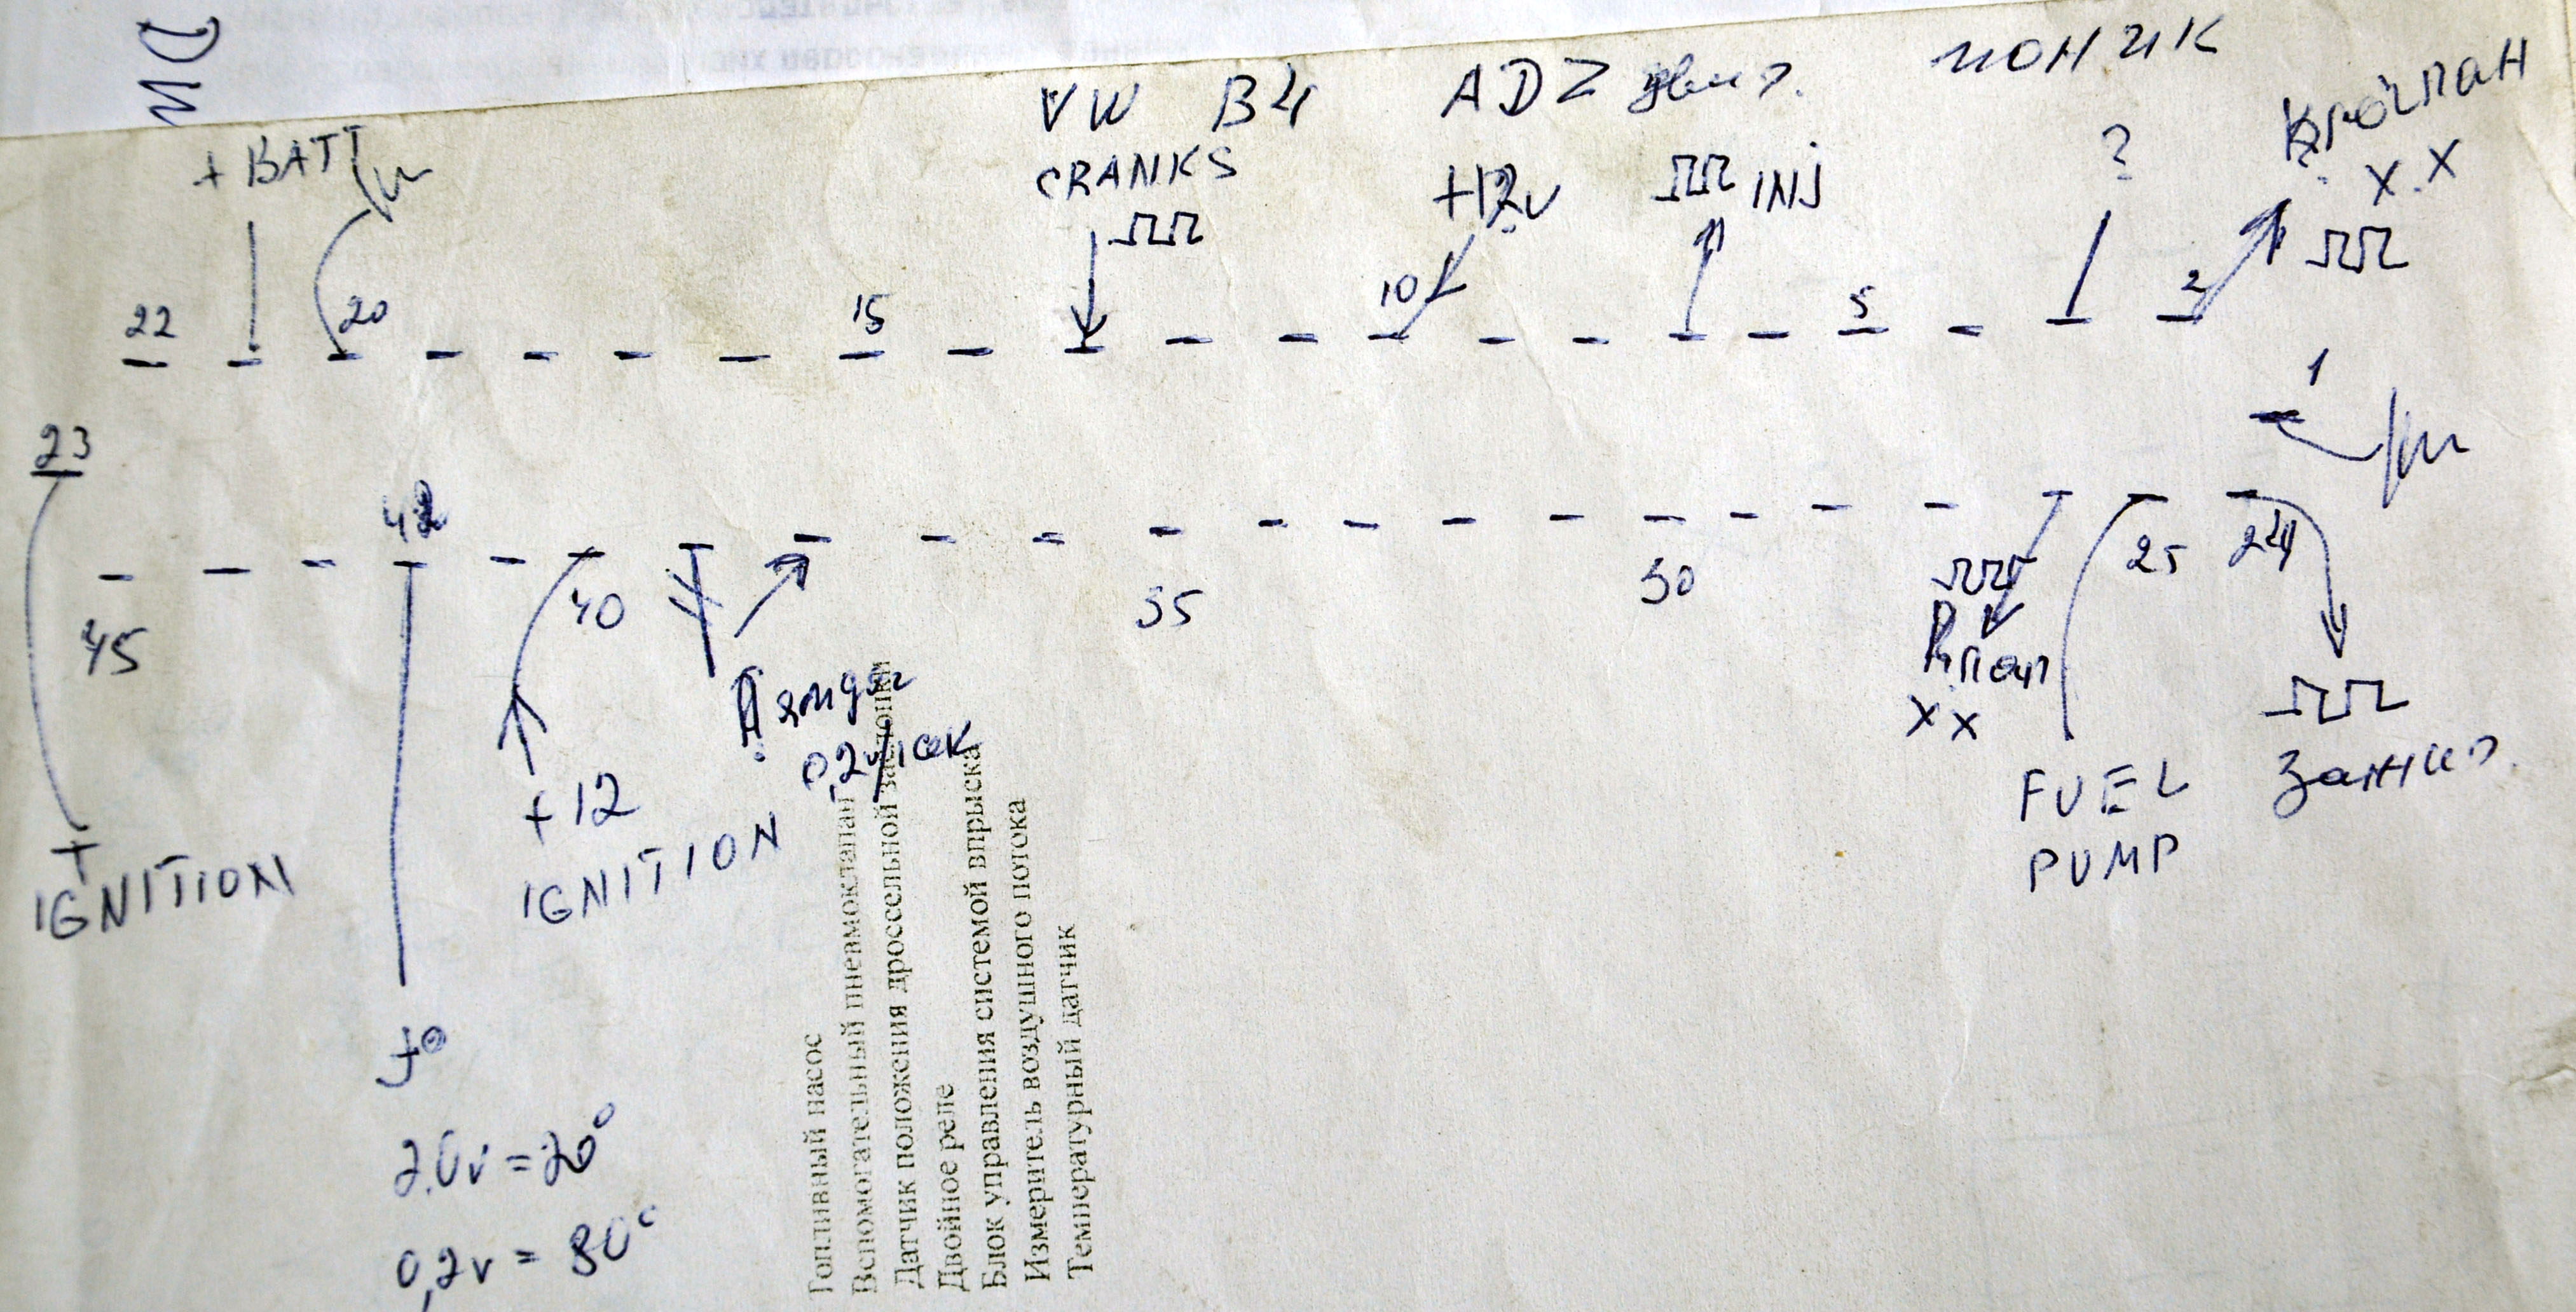 VW B4 ADZ двиг.
CRANKS
+12v
INJ
?
Клапан
X.X
+ BATT
22
20
15
10
5
2
1
23
42
45
40
35
30
25
24
Клап
X X
Лямбда
+12
IGNITION
+
IGNITION
FUEL
PUMP
Зажиг.
t°
2.0v = 20°
0,2v = 80°
Топливный насос
Вспомогательный пневмоклапан
Датчик положения дроссельной заслонки
Двойное реле
Блок управления системой впрыска
Измеритель воздушного потока
Температурный датчик